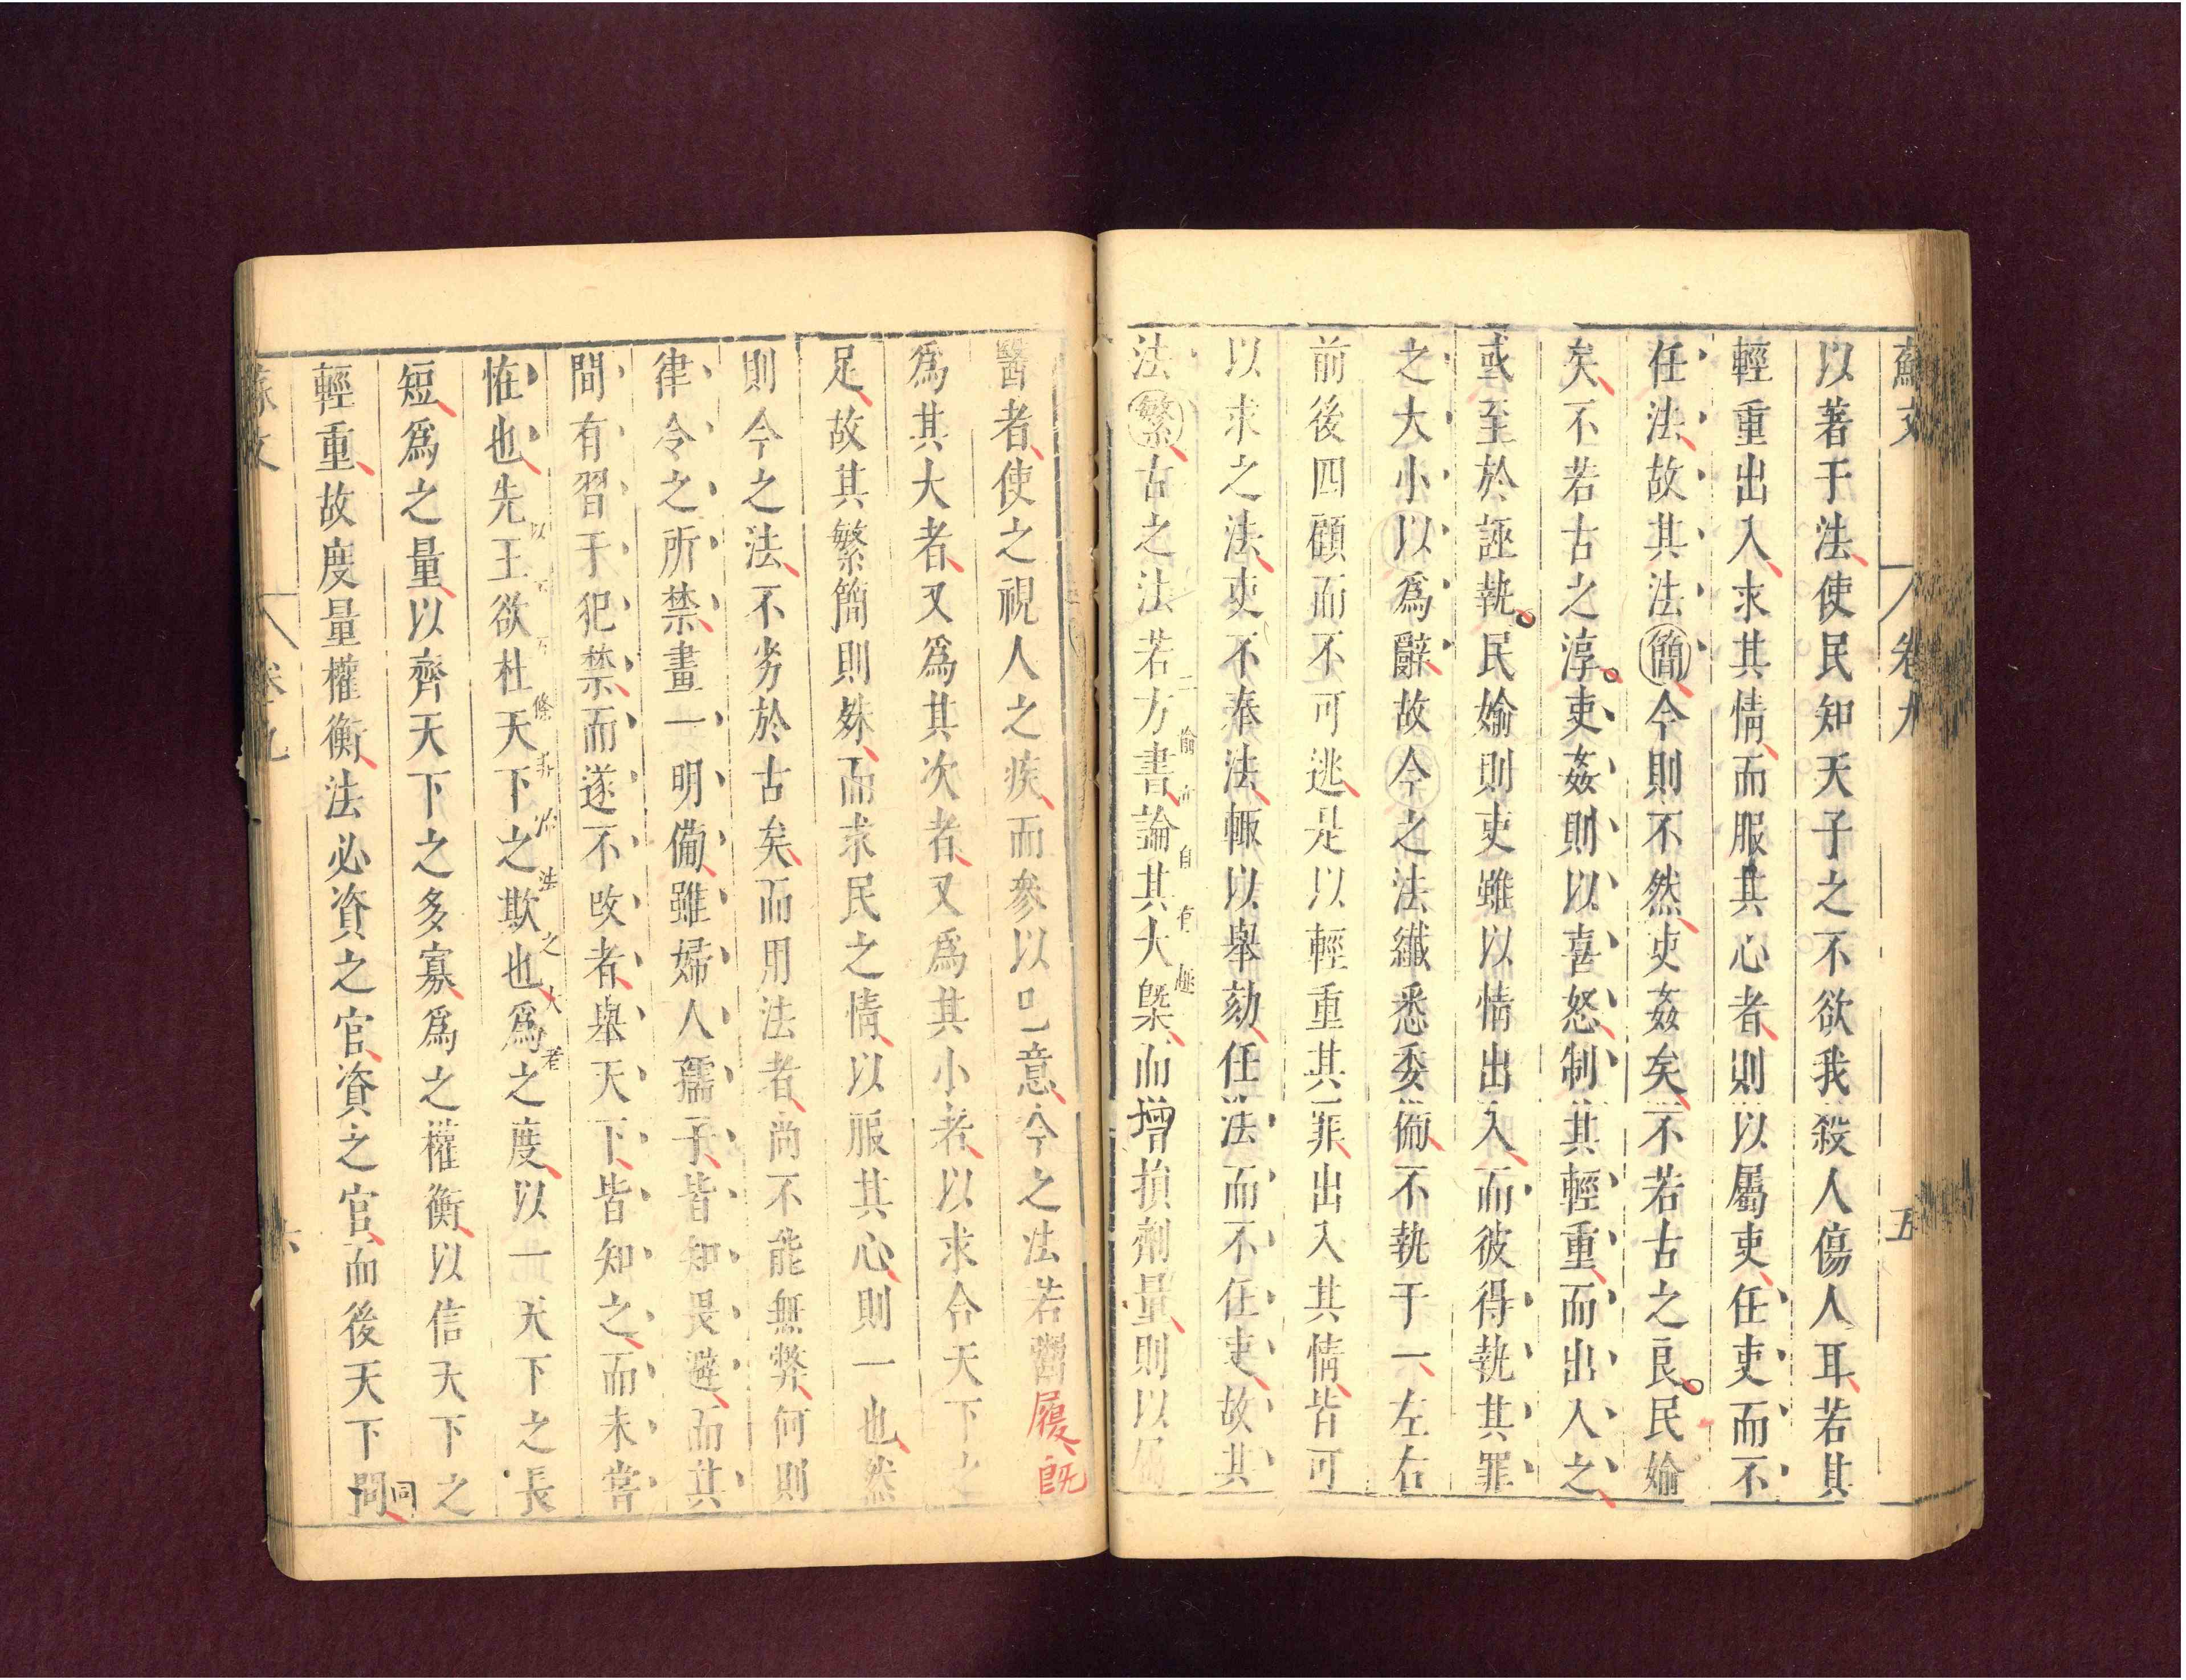 蘇文 卷九 五
以著于法使民知天子之不欲我殺人傷人耳若其
輕重出入求其情而服其心者則以屬吏任吏而不
任法故其法簡今則不然吏姦矣不若古之良民媮
矣不若古之淳吏姦則以喜怒制其輕重而出入之
或至於誣執民媮則吏雖以情出入而彼得執其罪
之大小以爲辭故今之法纖悉委備不執于一左右
前後四顧而不可逃是以輕重其罪出入其情皆可
以求之法吏不奉法輒以舉劾任法而不任吏故其
法繁古之法若方書論其大槩而增損劑量則以屬
二喻亦自有趣
醫者使之視人之疾而參以己意今之法若鬻屨既
爲其大者又爲其次者又爲其小者以求合天下之
足故其繁簡則殊而求民之情以服其心則一也然
則今之法不劣於古矣而用法者尚不能無弊何則
律令之所禁畫一明備雖婦人孺子皆知畏避而其
間有習于犯禁而遂不改者舉天下皆知之而未嘗
恠也先王欲杜天下之欺也爲之度以一天下之長
以下 條弄法之大者
短爲之量以齊天下之多寡爲之權衡以信天下之
輕重故度量權衡法必資之官資之官而後天下同
同
蘇文 卷九 六